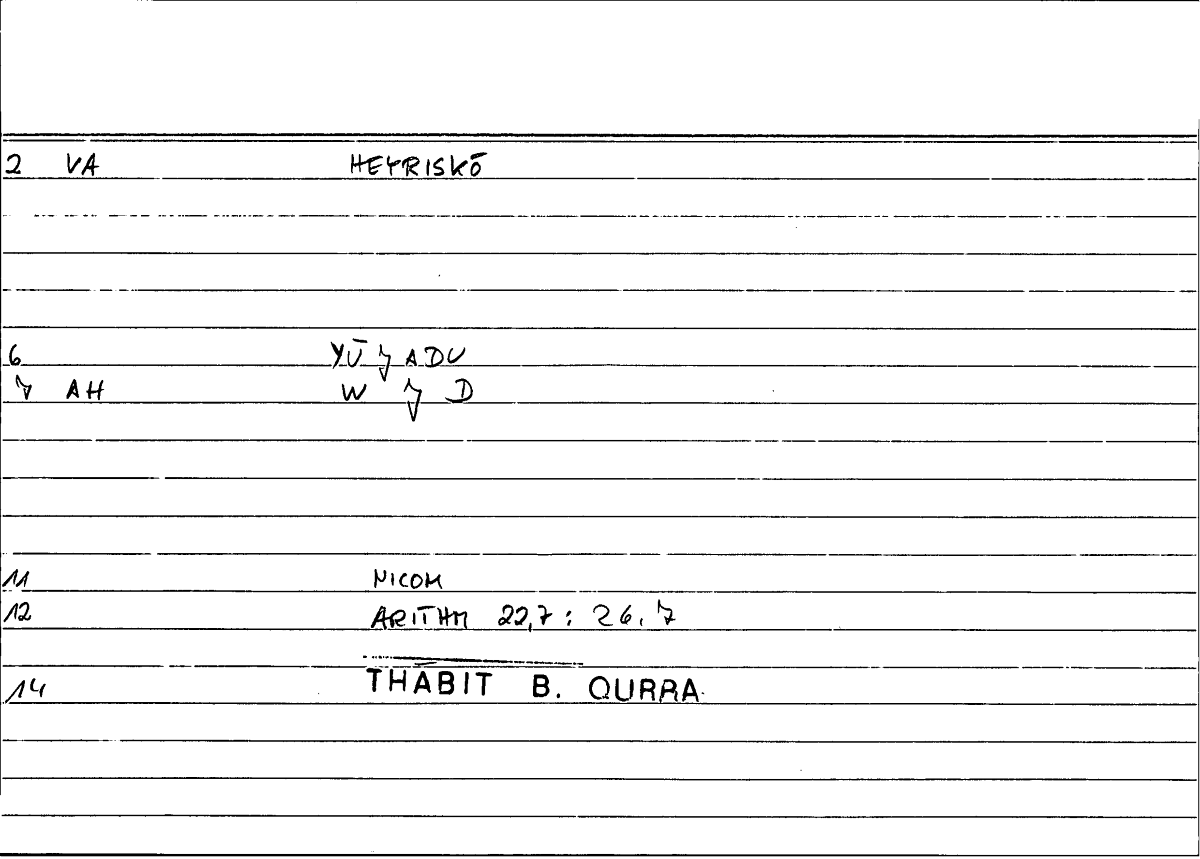 2 VA HEYRISKŌ
6 YŪ ǧ ADU
7 AH W ǧ D
11 NICOM
12 ARITHM 22,7 : 26,7
14 THĀBIT B. QURRA